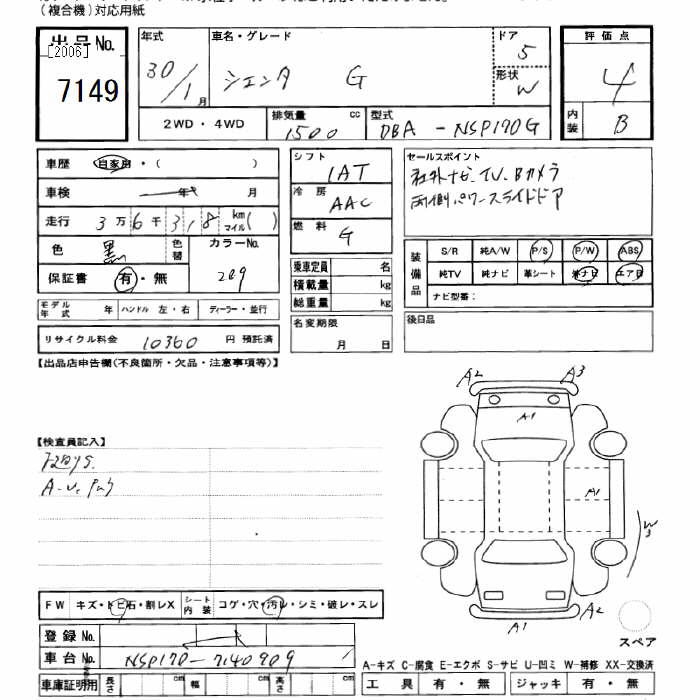 (複合機)対応用紙
出品No.
[2006]
7149
年式
30/1月
車名・グレード
シエンタ G
ドア
5
形状
W
評価点
4
内装
B
2WD・4WD
排気量 cc
1500
型式
DBA-NSP170G
車歴 自家用・( )
車検 年 月
走行 3万6千318 km マイル( )
色 黒 色替 カラーNo.
209
保証書 有・無
モデル年式 年 ハンドル 左・右 ディーラー・並行
リサイクル料金 10360 円 預託済
シフト
IAT
冷房
AAC
燃料
G
乗車定員 名
積載量 kg
総重量 kg
名変期限
月 日
セールスポイント
社外ナビ、TV、Bカメラ
両側パワースライドドア
装備品
S/R 純A/W P/S P/W ABS
純TV 純ナビ 革シート 純ナビ エアB
ナビ型番:
後日品
【出品店申告欄(不良箇所・欠品・注意事項等)】
【検査員記入】
A2 A3
A1
A1
W3
A1 A2
スペア
FW キズ・トビ石・割レX シート内装 コゲ・穴・汚レ・シミ・破レ・スレ
登録No.
車台No. NSP170-7140909
車庫証明用 長さ cm 幅 cm 高さ cm
A-キズ C-腐食 E-エクボ S-サビ U-凹ミ W-補修 XX-交換済
工具 有・無 ジャッキ 有・無